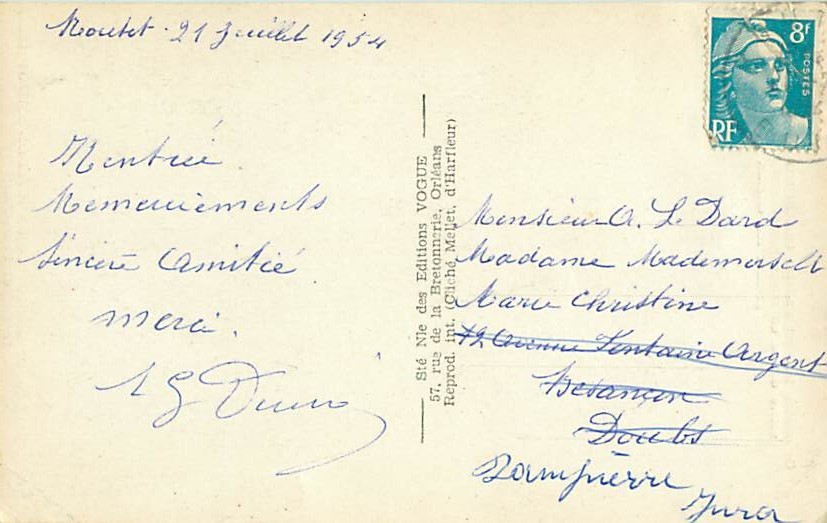 21 Juillet 1954
Rentrée
Remerciements
Sincère Amitié
Merci.
Sté Nle des Editions VOGUE
57, rue de la Bretonnerie, Orléans
Reprod. int. (Cliché Mellet, d'Harfleur)
8f
POSTES
RF
Monsieur A. Le Dard
Madame Mademoiselle
Marie Christine
12 Avenue Fontaine Argent
Besançon
Doubs
Dampierre
Jura